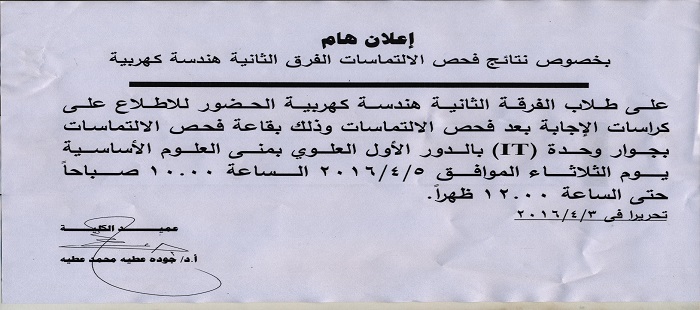 إعلان هام
بخصوص نتائج فحص الالتماسات الفرق الثانية هندسة كهربية
على طلاب الفرقة الثانية هندسة كهربية الحضور للاطلاع على
كراسات الإجابة بعد فحص الالتماسات وذلك بقاعة فحص الالتماسات
بجوار وحدة (IT) بالدور الأول العلوي بمنى العلوم الأساسية
يوم الثلاثاء الموافق ٢٠١٦/٤/٥ الساعة ١٠.٠٠ صباحاً
حتى الساعة ١٢.٠٠ ظهراً.
تحريرا فى ٢٠١٦/٤/٣
عميد الكلية
أ.د/ جوده عطيه محمد عطيه